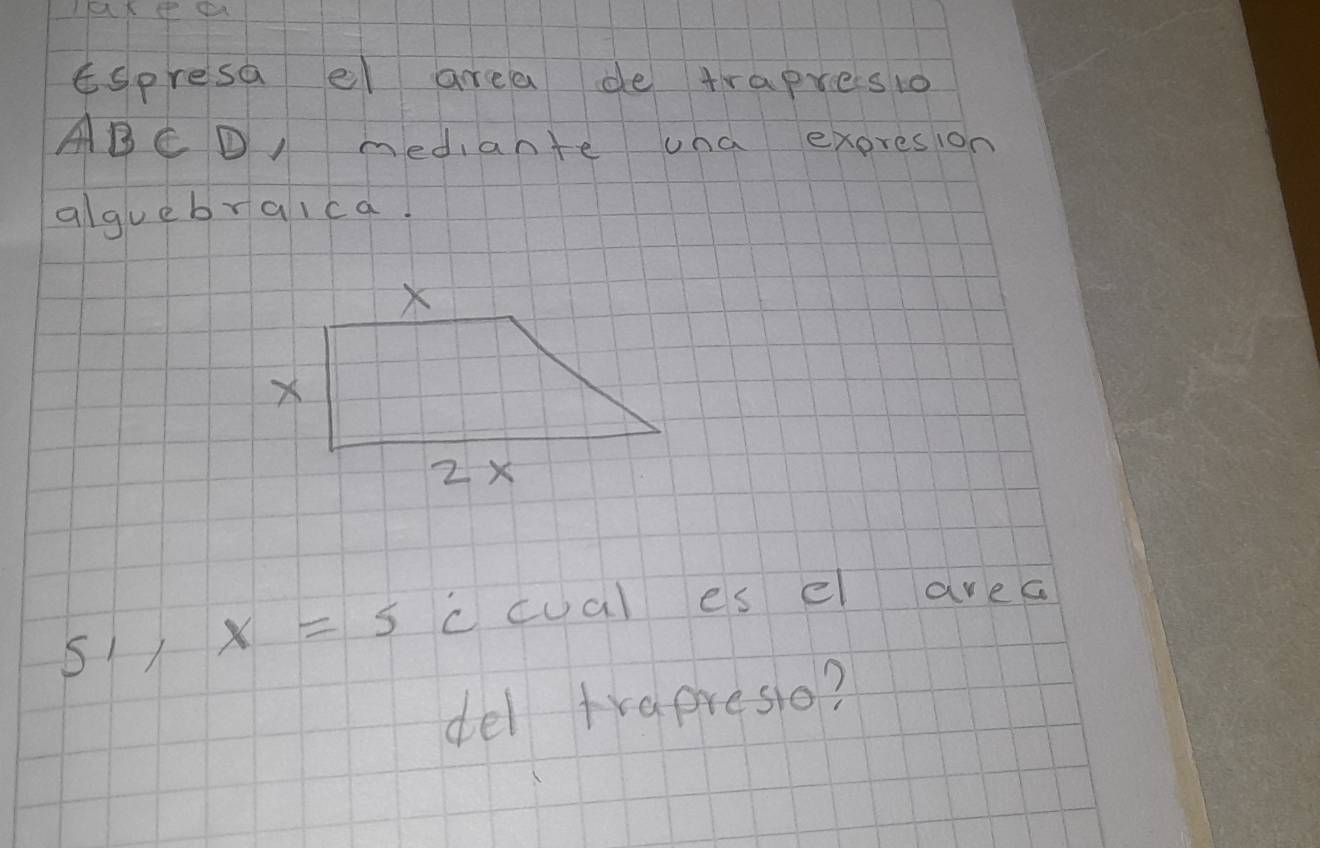 Tarea
Espresa el area de trapresio
ABCD, mediante una expresion
alguebraica.
x
x
2x
si, x = 5 ¿ cual es el area
del trapresio?